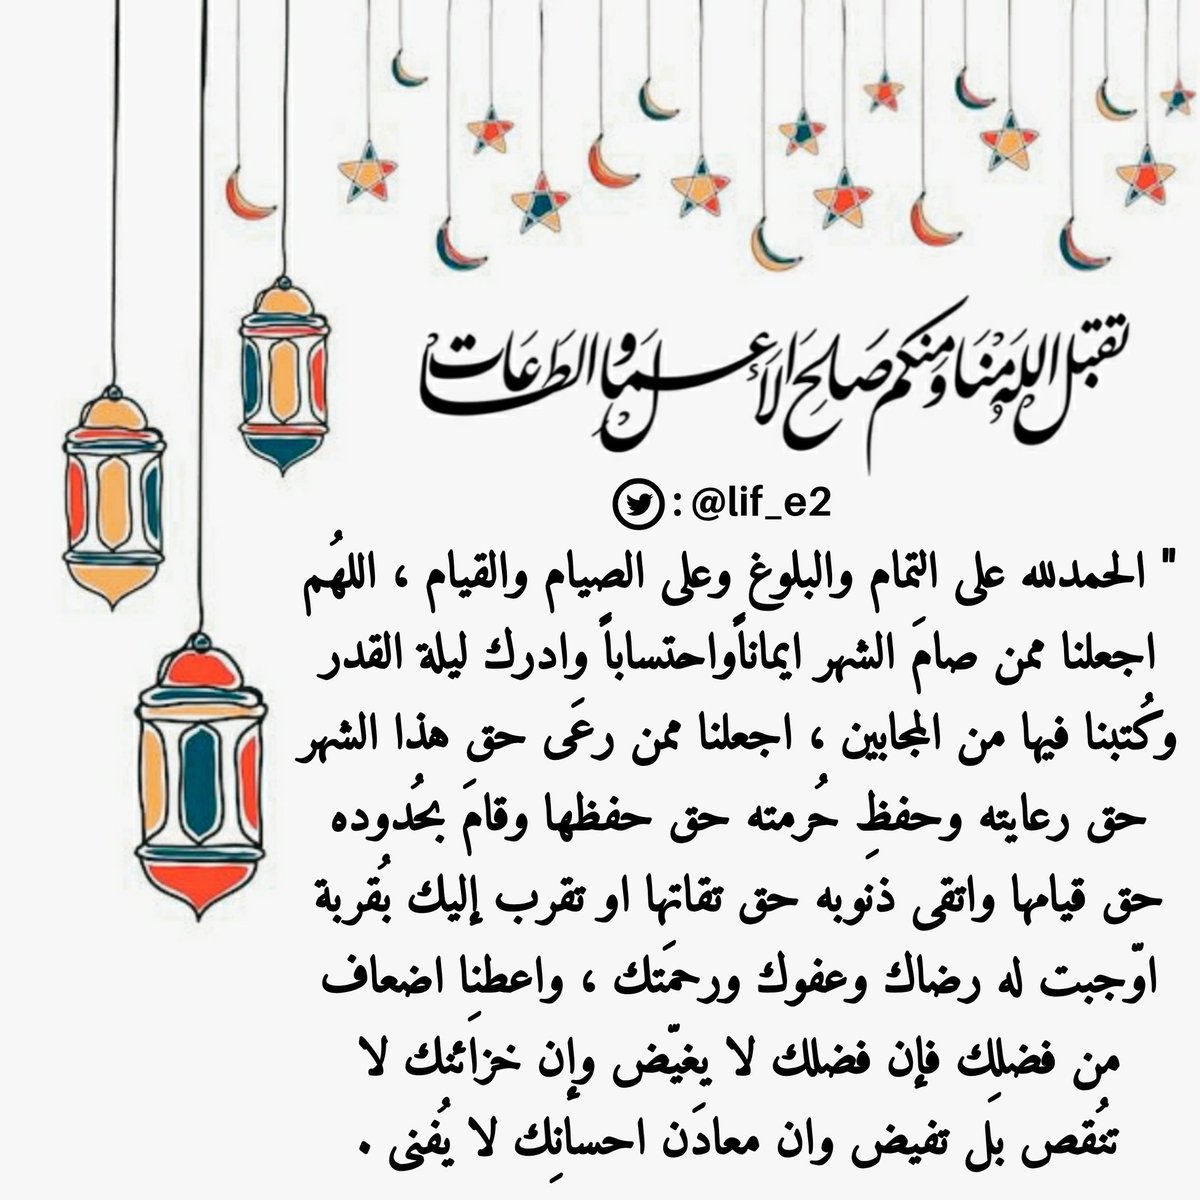 تقبل الله منا ومنكم صالح الأعمال والطاعات
: @lif_e2
" الحمدلله على التمام والبلوغ وعلى الصيام والقيام ، اللهُم
اجعلنا ممن صامَ الشهر ايماناًواحتساباً وادرك ليلة القدر
وكُتبنا فيها من المجابين ، اجعلنا ممن رعَى حق هذا الشهر
حق رعايته وحفظِ حُرمته حق حفظها وقامَ بحُدوده
حق قيامها واتقى ذنوبه حق تقاتها او تقرب إليك بُقربة
اوّجبت له رضاك وعفوك ورحمَتك ، واعطنِا اضعاف
من فضلِك فإن فضلك لا يغيّض وإن خزائنك لا
تنُقص بل تفيض وان معادَن احسانِك لا يُفنى .